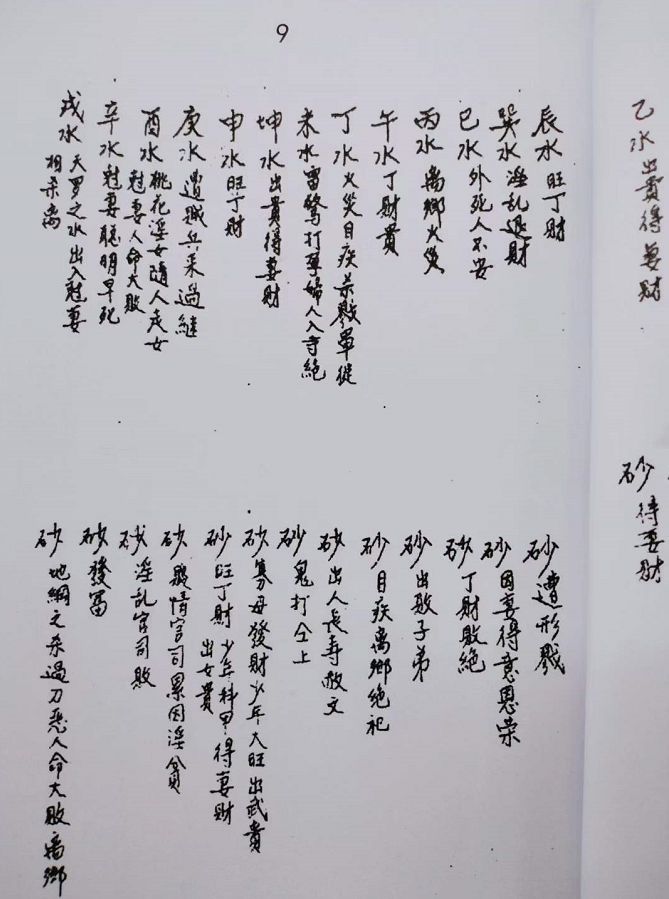 9
乙水出貴得妻财
砂得妻财
辰水旺丁财
巽水淫乱退财
巳水外死人不安
丙水离鄉火災
午水丁财貴
丁水火災目疾杀戮軍徒
未水雷驚打孕婦人入寺絶
坤水出貴得妻财
申水旺丁财
庚水遭贼兵 過継
酉水桃花淫女随人走女
尅妻人命大敗
辛水尅妻聪明早死
戌水天罗之水出入尅妻
相杀离
砂遭形戮
砂因妻得意恩荣
砂丁财敗絶
砂出敗子弟
砂目疾离鄉絶祀
砂出人長寿 文
砂鬼打仝上
砂寡母發财少年大旺出武貴
砂旺丁财少年科甲得妻财
出女貴
砂 情官司累因淫貪
砂淫乱官司敗
砂發富
砂地綱之杀過刀惡人命大敗离鄉